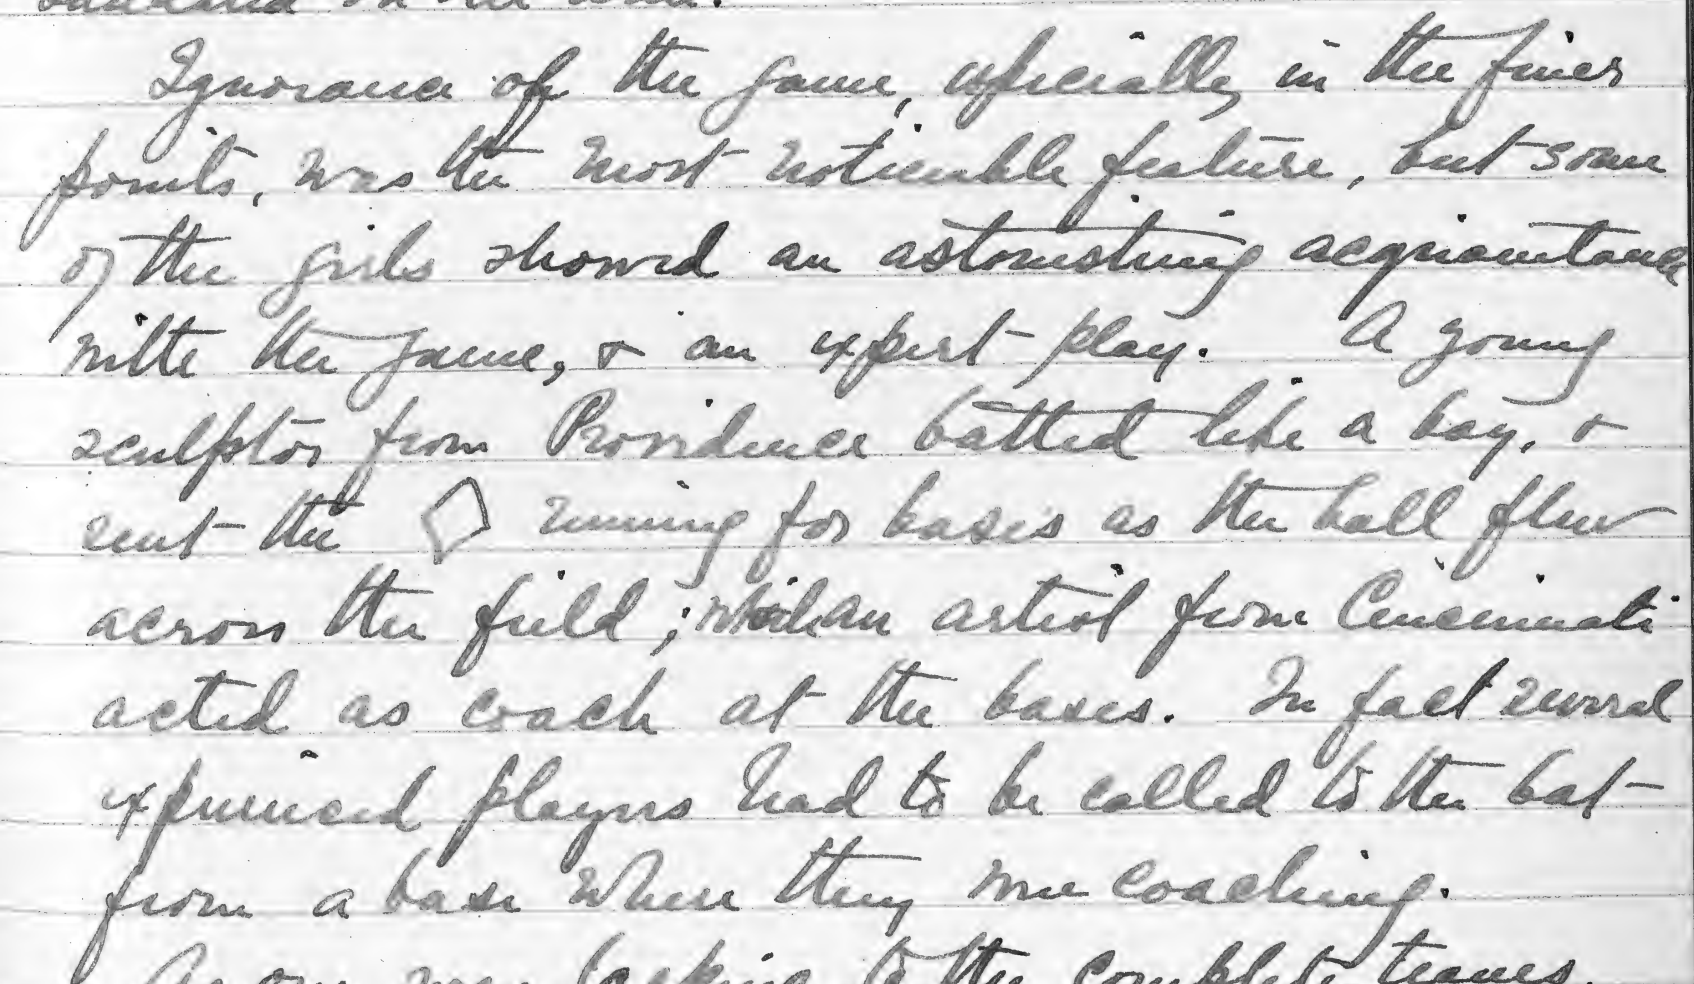 Ignorance of the game, especially in the finer
points, was the most noticeable feature, but some
of the girls showed an astonishing acquaintance
with the game, & an expert play. A young
sculptor from Providence batted like a boy, &
sent the ◇ running for bases as the ball flew
across the field; while an artist from Cincinnati
acted as coach at the bases. In fact several
experienced players had to be called to the bat
from a base where they were coaching.
lacking to the complete teams.